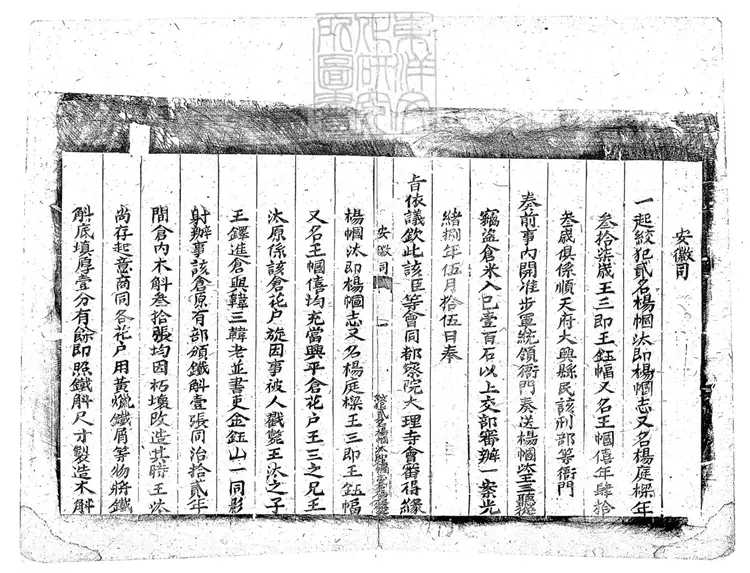 安徽司
一起絞犯貳名楊幗汰即楊幗志又名楊庭樑年
叁拾柒歲王三即王鈺幅又名王幗僖年肆拾
叁歲俱係順天府大興縣民該刑部等衙門
奏前事內開准步軍統領衙門奏送楊幗汰王三聽從
竊盜倉米入己壹百石以上交部審辦一案光
緒捌年伍月拾伍日奉
旨依議欽此該臣等會同都察院大理寺會審得緣
安徽司
楊幗汰即楊幗志又名楊庭樑王三即王鈺幅
又名王幗僖均充當興平倉花户王三之兄王
汰原係該倉花户旋因事被人戳斃王汰之子
王鐸進倉與韓三韓老並書吏金鈺山一同影
射辦事該倉原有部頒鐵斛壹張同治拾貳年
間倉內木斛叁拾張均因朽壞改造其時王汰
尚存起意商同各花户用黃蠟鐵屑等物將鐵
斛底填厚壹分有餘即照鐵斛尺寸製造木斛
東洋文化研究所圖書